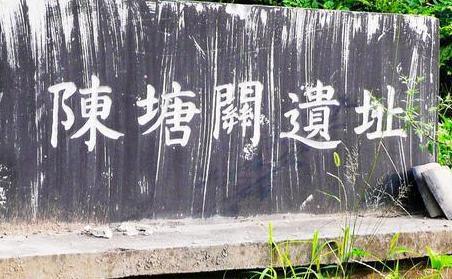 陳塘關遺址